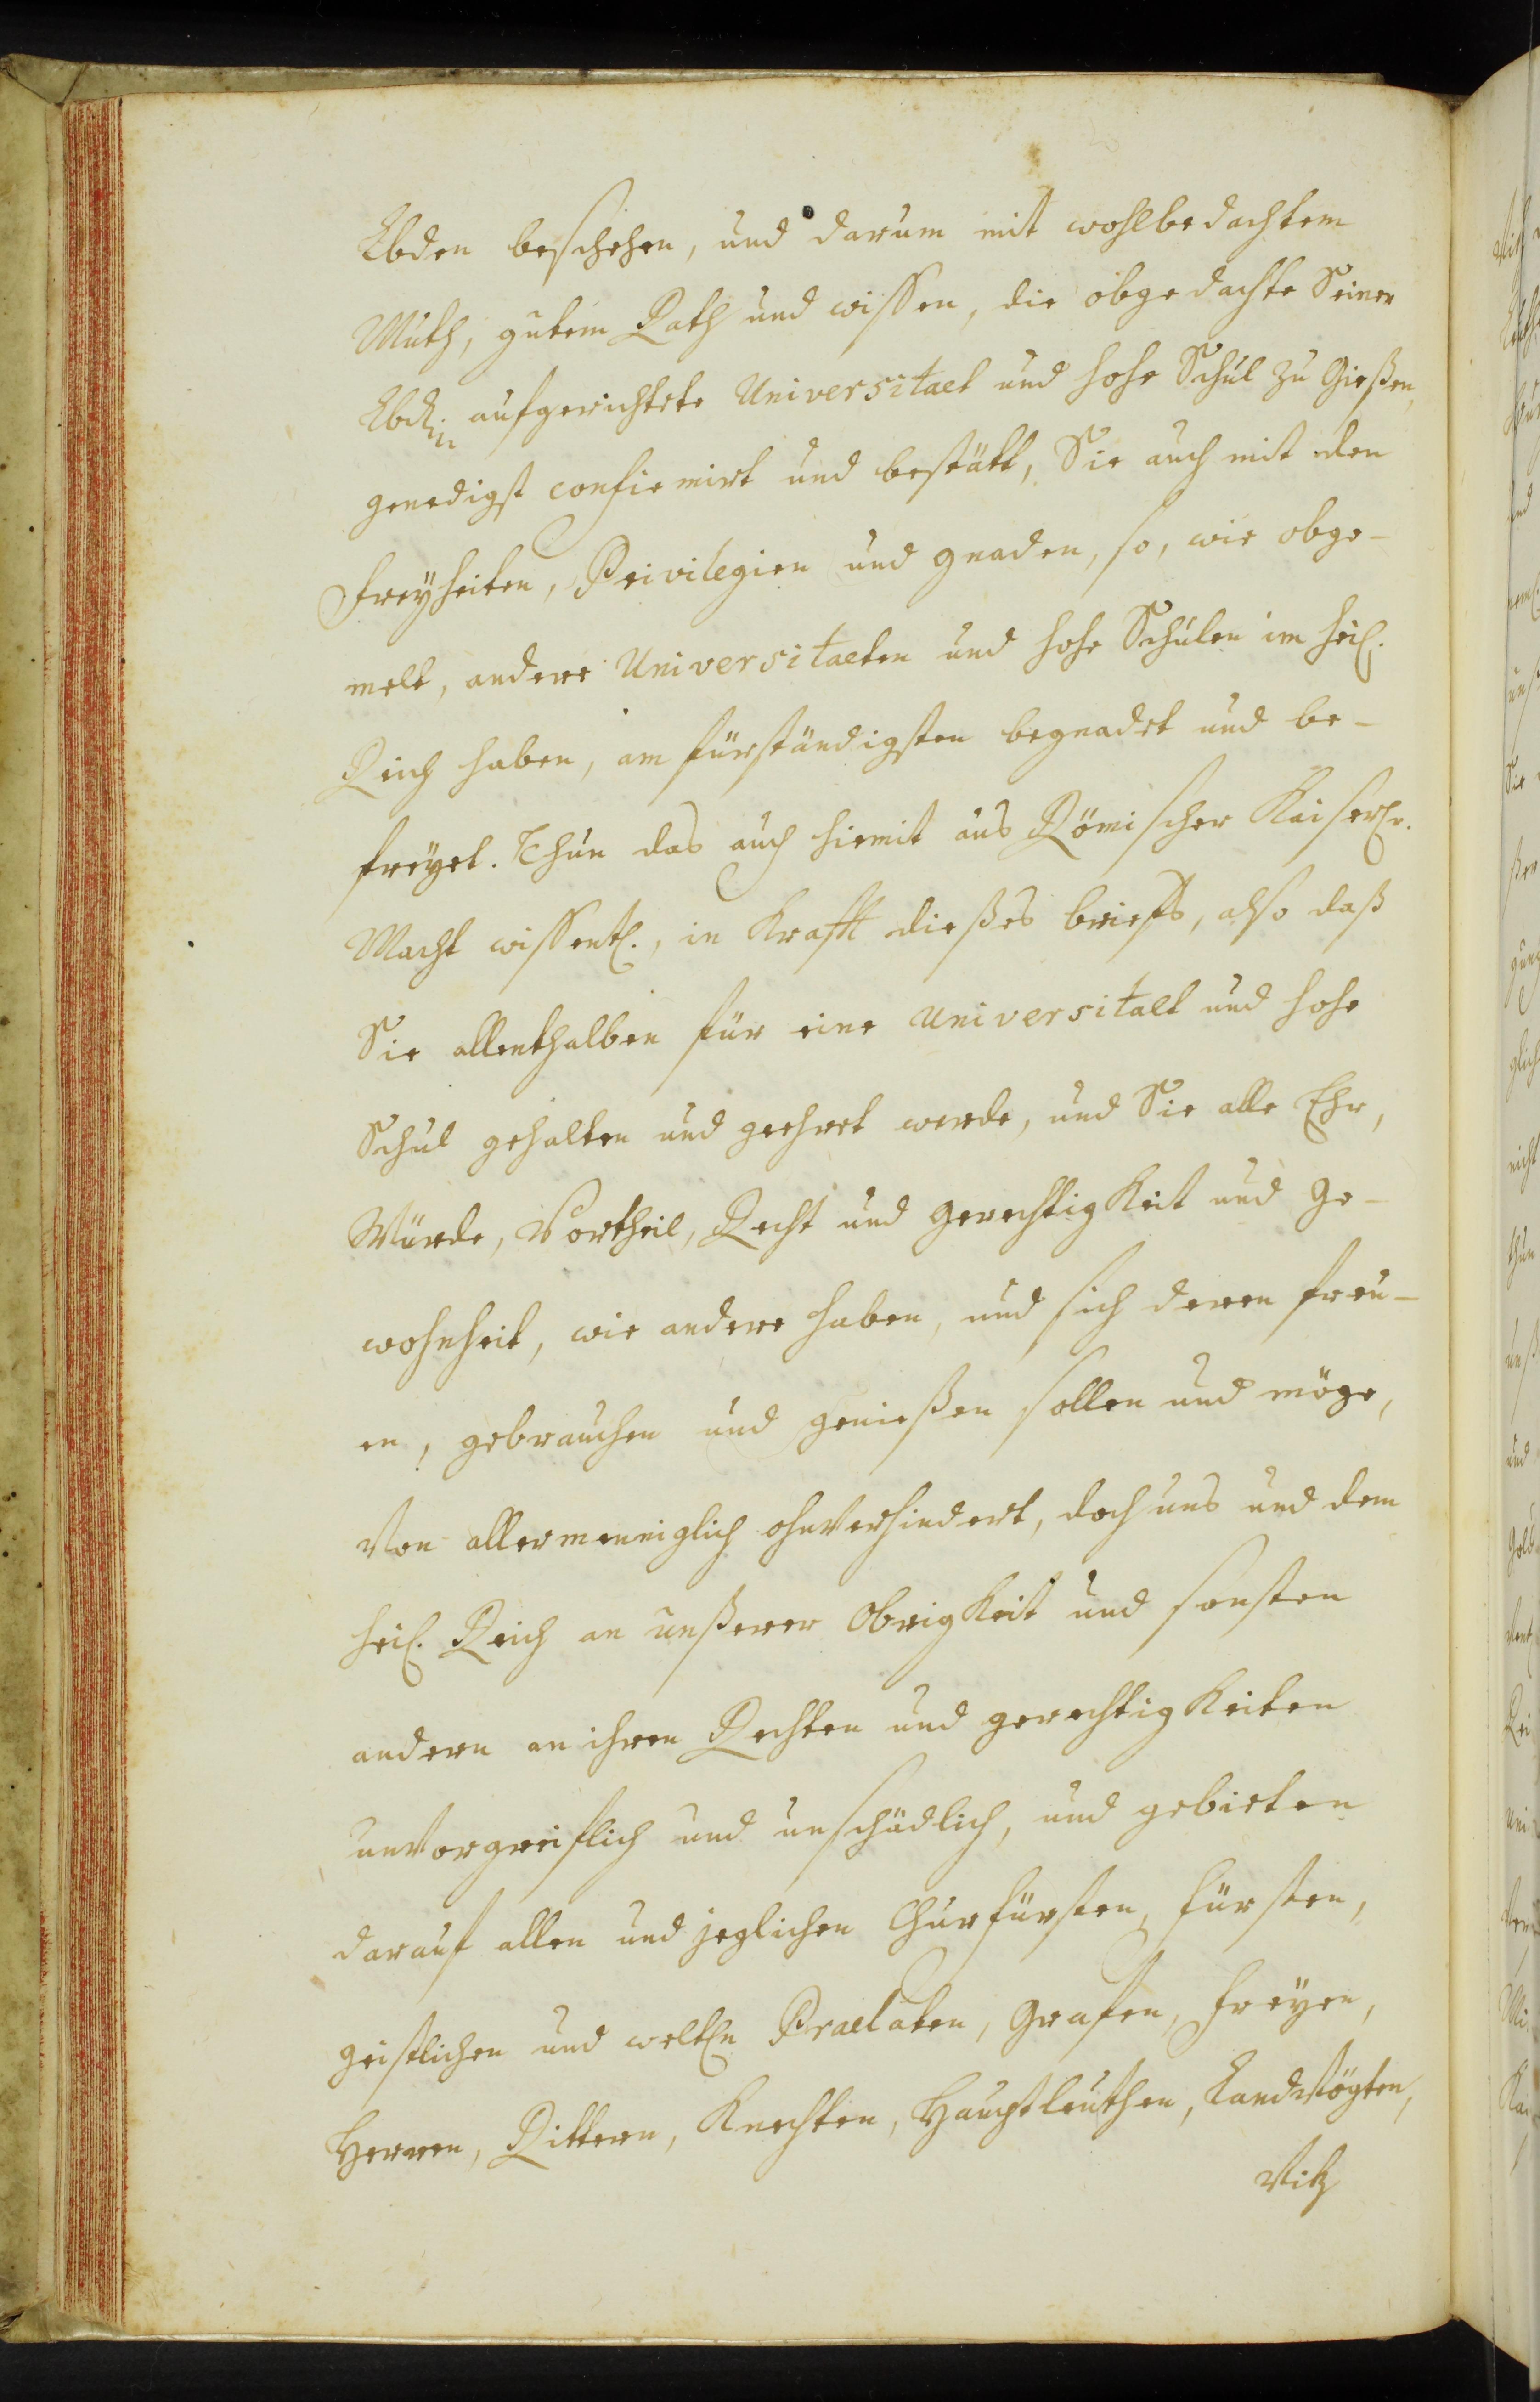 Lbden beschehen, und darum mit wohlbedachtem
Muth, gutem Rath und wissen, die obgedachte Seiner
Lbd. aufgerichtete Universitaet und hohe Schul zu Gießen,
genedigst confirmirt und bestätt, Sie auch mit den
freyheiten, Privilegien und gnaden, so, wie obge-
melt, andere Universitaeten und hohe Schulen im heil.
Reich haben, am fürständigsten begnadet und be-
freyet. Thun das auch hiemit aus Römischer Kaiserlr.
Macht wissentl., in Krafft dießes briefs, also daß
Sie allenthalben für eine Universitaet und hohe
Schul gehalten und geehret werde, und Sie alle Ehr,
Würde, Vortheil, Recht und gerechtigkeit und ge-
wohnheit, wie andere haben, und sich deren freu-
en, gebrauchen und genießen sollen und möge,
von allermenniglich ohnverhindert, doch uns und dem
heil. Reich an unßerer Obrigkeit und sonsten
andern an ihren Rechten und gerechtigkeiten
unvorgreiflich und unschädlich, und gebieten
darauf allen und jeglichen Churfürsten, fürsten,
geistlichen und weltln Praelaten, Grafen, freyen,
Herren, Rittern, Knechten, Hauptleuthen, Landvögten,
Vitz